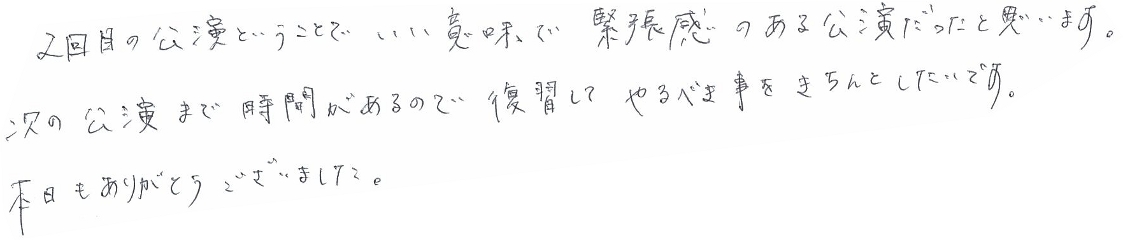 2回目の公演ということで いい意味で 緊張感のある公演だったと思います。
次の公演まで時間があるので 復習して やるべき事をきちんとしたいです。
本日もありがとうございました。